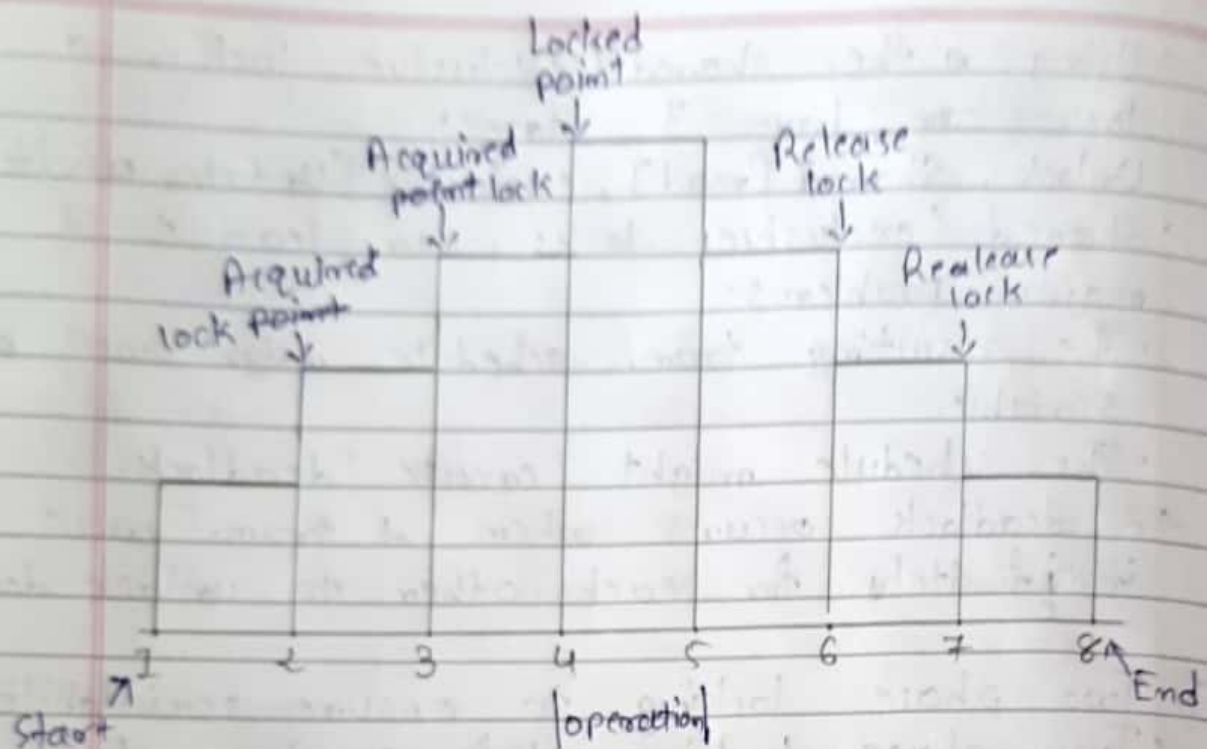 Locked
point
Acquired
point lock
Release
lock
Acquired
lock point
Realease
lock
1 2 3 4 5 6 7 8
Start
operation
End